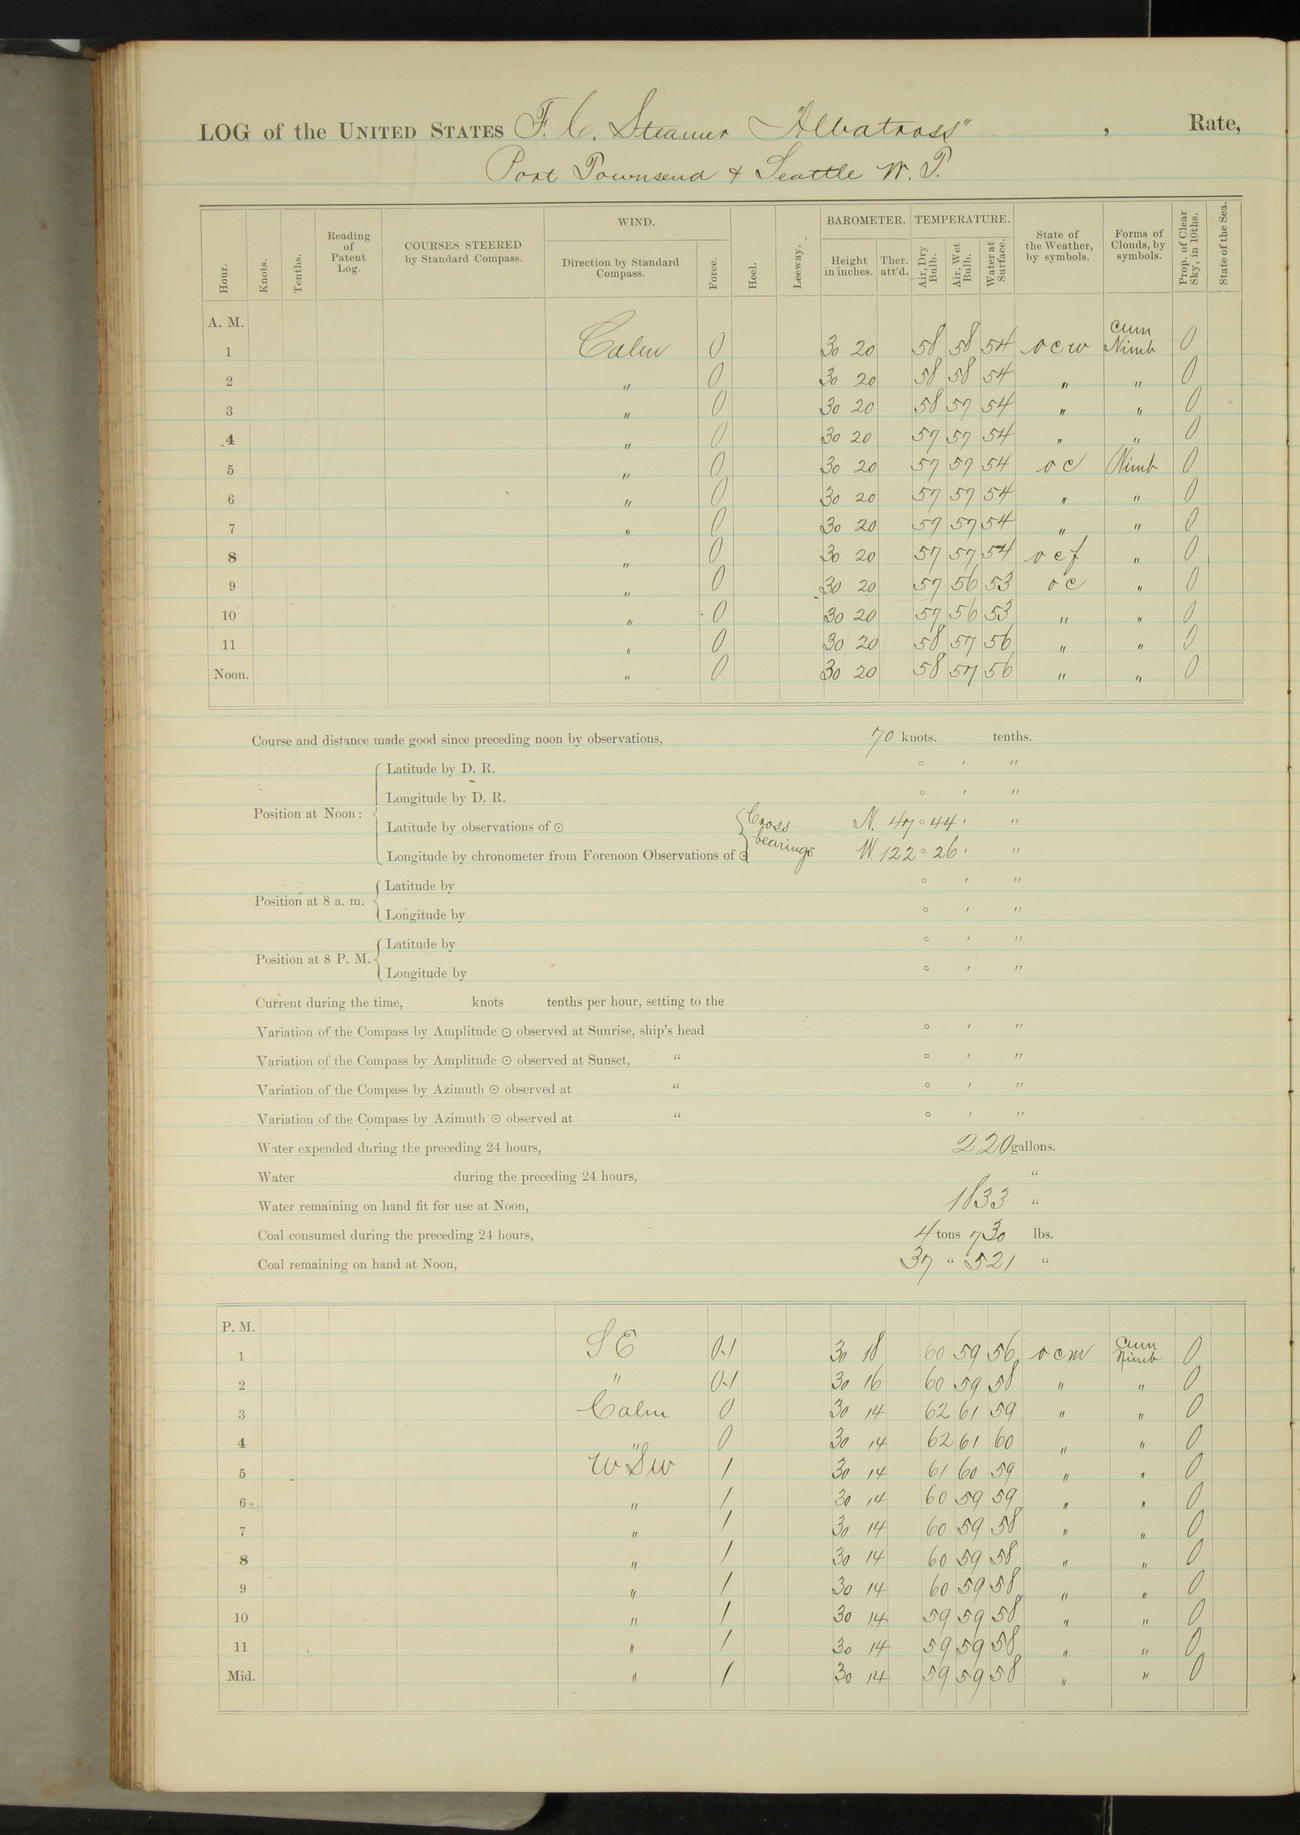 LOG of the UNITED STATES F. C. Steamer "Albatross" , Rate,
Port Townsend & Seattle W. T.
Hour. Knots. Tenths. Reading of Patent Log. COURSES STEERED by Standard Compass. WIND. Direction by Standard Compass. Force. Heel. Leeway. BAROMETER. Height in inches. Ther. att'd. TEMPERATURE. Air, Dry Bulb. Air, Wet Bulb. Water at Surface. State of the Weather, by symbols. Forms of Clouds, by symbols. Prop. of Clear Sky, in 10ths. State of the Sea.
A. M.
1 Calm 0 30 20 58 58 54 o c w Cum Nimb 0
2 " 0 30 20 58 58 54 " " 0
3 " 0 30 20 58 57 54 " " 0
4 " 0 30 20 57 57 54 " " 0
5 " 0 30 20 57 57 54 o c Nimb 0
6 " 0 30 20 57 57 54 " " 0
7 " 0 30 20 57 57 54 " " 0
8 " 0 30 20 57 57 54 o c f " 0
9 " 0 30 20 57 56 53 o c " 0
10 " 0 30 20 57 56 53 " " 0
11 " 0 30 20 58 57 56 " " 0
Noon. " 0 30 20 58 57 56 " " 0
Course and distance made good since preceding noon by observations, 70 knots. tenths.
Latitude by D. R. ° ′ ″
Longitude by D. R. ° ′ ″
Position at Noon:
Latitude by observations of ☉ Cross bearings N. 47 ° 44 ′ ″
Longitude by chronometer from Forenoon Observations of ☉ W. 122 ° 26 ′ ″
Position at 8 a. m. Latitude by ° ′ ″
Longitude by ° ′ ″
Position at 8 P. M. Latitude by ° ′ ″
Longitude by ° ′ ″
Current during the time, knots tenths per hour, setting to the
Variation of the Compass by Amplitude ☉ observed at Sunrise, ship's head ° ′ ″
Variation of the Compass by Amplitude ☉ observed at Sunset, " ° ′ ″
Variation of the Compass by Azimuth ☉ observed at " ° ′ ″
Variation of the Compass by Azimuth ☉ observed at " ° ′ ″
Water expended during the preceding 24 hours, 220 gallons.
Water during the preceding 24 hours, "
Water remaining on hand fit for use at Noon, 1833 "
Coal consumed during the preceding 24 hours, 4 tons 730 lbs.
Coal remaining on hand at Noon, 37 " 521 "
P. M.
1 S E 0-1 30 18 60 59 56 o c m Cum Nimb 0
2 " 0-1 30 16 60 59 58 " " 0
3 Calm 0 30 14 62 61 59 " " 0
4 " 0 30 14 62 61 60 " " 0
5 W S W 1 30 14 61 60 59 " " 0
6 " 1 30 14 60 59 59 " " 0
7 " 1 30 14 60 59 58 " " 0
8 " 1 30 14 60 59 58 " " 0
9 " 1 30 14 60 59 58 " " 0
10 " 1 30 14 59 59 58 " " 0
11 " 1 30 14 59 59 58 " " 0
Mid. " 1 30 14 59 59 58 " " 0